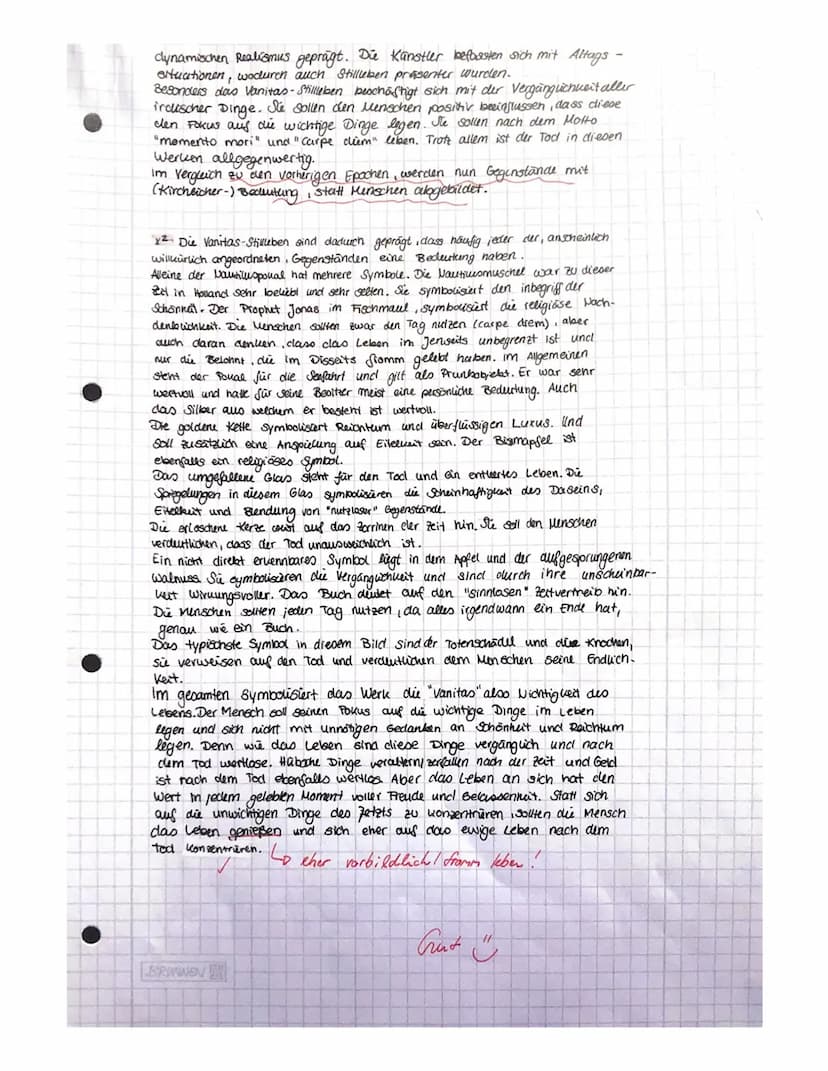 dynamischen Realismus geprägt. Die Künstler befassten sich mit Alltags-
situationen, wodurch auch Stillleben präsenter wurden.
Besonders das Vanitas-Stillleben beschäftigt sich mit der Vergänglichkeit aller
irdischer Dinge. Sie sollen den Menschen positiv beeinflussen, dass diese
den Fokus auf die wichtige Dinge legen. Sie sollen nach dem Motto
"momento mori" und "carpe diem" leben. Trotz allem ist der Tod in diesen
Werken allgegenwertig.
Im Vergleich zu den vorherigen Epochen, werden nun Gegenstände mit
(Kirchlicher-) Bedeutung, statt Menschen abgebildet.
x2 Die Vanitas-Stillleben sind dadurch geprägt, dass häufig jeder der, anscheinlich
willkürlich angeordneten, Gegenständen eine Bedeutung haben.
Alleine der Nautiluspokal hat mehrere Symbole. Die Nautilusmuschel war zu dieser
Zeit in Holland sehr beliebt und sehr selten. Sie symbolisiert den inbegriff der
Schönheit. Der Prophet Jonas im Fischmaul, symbolisiert die religiöse Nach-
denklichkeit. Die Menschen sollten zwar den Tag nutzen (carpe diem), aber
auch daran denken, dass das Leben im Jenseits unbegrenzt ist und
nur die Belohnt, die im Disseits fromm gelebt haben. Im Allgemeinen
steht der Pokal für die Seefahrt und gilt als Prunkobjekt. Er war sehr
wertvoll und hatte für seine Besitzer meist eine persönliche Bedeutung. Auch
das Silber aus welchem er besteht ist wertvoll.
Die goldene Kette symbolisiert Reichtum und überflüssigen Luxus. Und
soll zusätzlich eine Anspielung auf Eitelkeit sein. Der Bisamapfel ist
ebenfalls ein religiöses Symbol.
Das umgefallene Glas steht für den Tod und ein entleertes Leben. Die
Spiegelungen in diesem Glas symbolisieren die Scheinhaftigkeit des Daseins,
Eitelkeit und Blendung von "nutzloser" Gegenstände.
Die erloschene Kerze weist auf das Zerrinnen der Zeit hin. Sie soll den Menschen
verdeutlichen, dass der Tod unausweichlich ist.
Ein nicht direkt erkennbares Symbol liegt in dem Apfel und der aufgesprungenen
Walnuss. Sie symbolisieren die Vergänglichkeit und sind durch ihre unscheinbar-
keit Wirkungsvoller. Das Buch deutet auf den "sinnlosen" Zeitvertreib hin.
Die Menschen sollten jeden Tag nutzen, da alles irgendwann ein Ende hat,
genau wie ein Buch.
Das typischste Symbol in diesem Bild sind der Totenschädel und die Knochen,
sie verweisen auf den Tod und verdeutlichen dem Menschen seine Endlich-
keit.
Im gesamten Symbolisiert das Werk die "Vanitas" also Nichtigkeit des
Lebens. Der Mensch soll seinen Fokus auf die wichtige Dinge im Leben
legen und sich nicht mit unnötigen Gedanken an Schönheit und Reichtum
legen. Denn wie das Leben sind diese Dinge vergänglich und nach
dem Tod wertlose. Hübsche Dinge veraltern/zerfallen nach der Zeit und Geld
ist nach dem Tod ebenfalls wertlos. Aber das Leben an sich hat den
Wert in jedem gelebten Moment voller Freude und Gelassenheit. Statt sich
auf die unwichtigen Dinge des Jetzts zu konzentrieren, sollten die Mensch
das Leben genießen und sich eher auf das ewige Leben nach dem
Tod konzentrieren.
↳ eher vorbildlich/fromm leben!
Gut
BRUNNEN